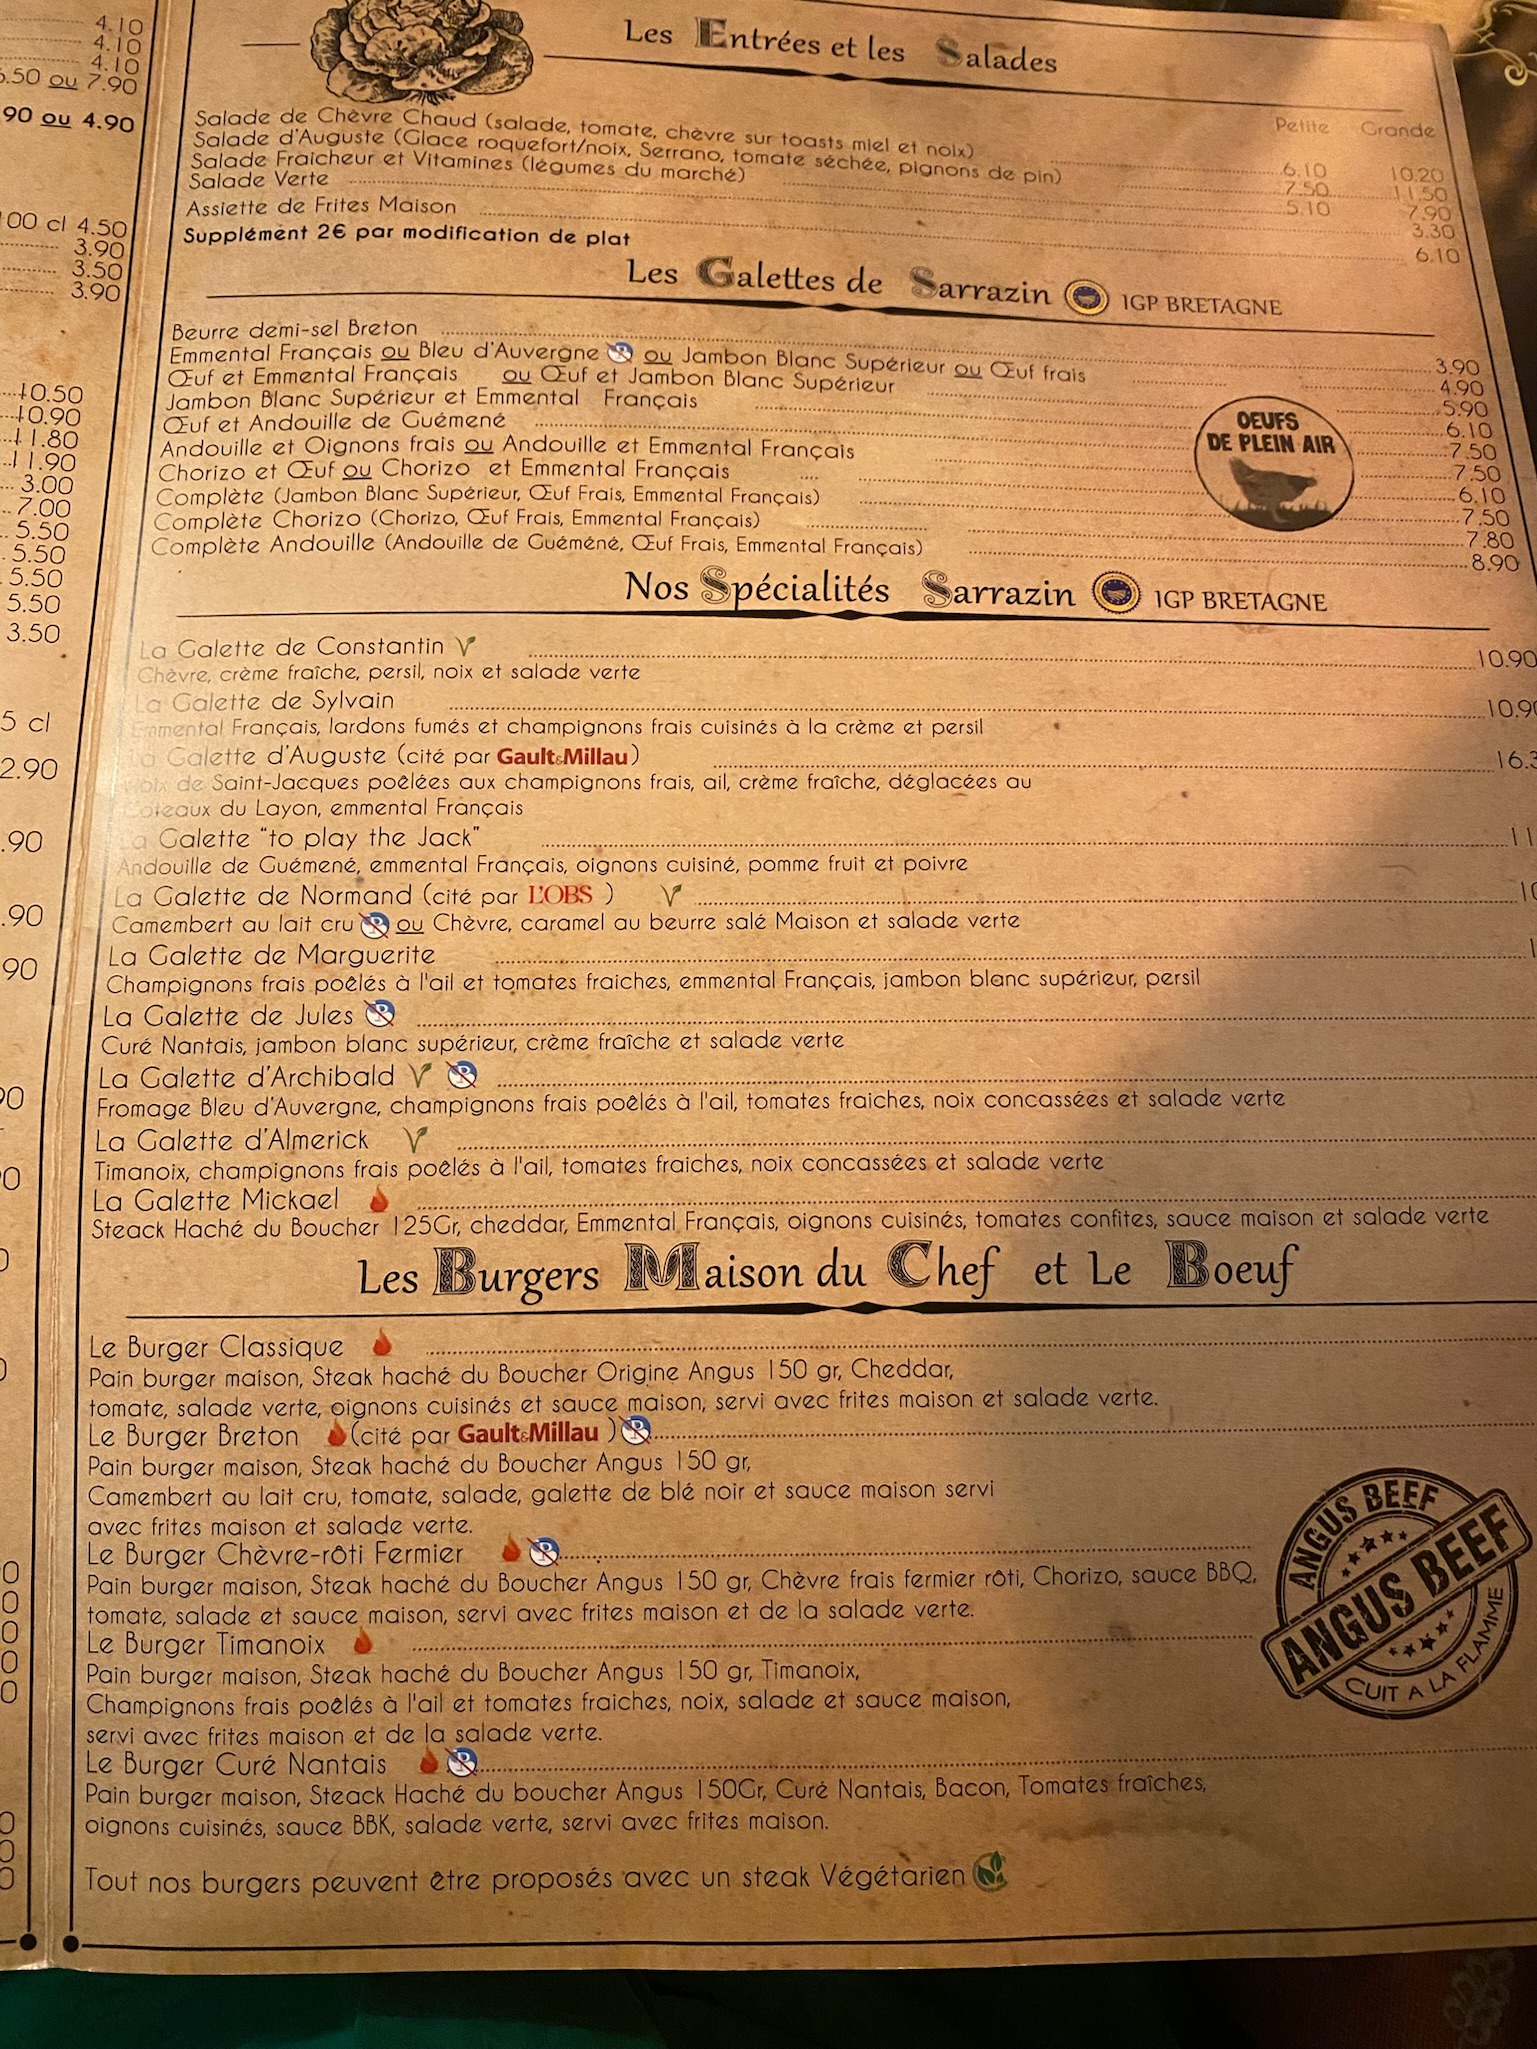 4.10
4.10
4.10
6.50 ou 7.90
90 ou 4.90
100 cl 4.50
3.90
3.50
3.90
10.50
10.90
11.80
11.90
3.00
7.00
5.50
5.50
5.50
5.50
3.50
5 cl
2.90
.90
.90
90
Les Entrées et les Salades
Petite Grande
Salade de Chèvre Chaud (salade, tomate, chèvre sur toasts miel et noix) 6.10 10.20
Salade d'Auguste (Glace roquefort/noix, Serrano, tomate séchée, pignons de pin) 7.50 11.50
Salade Fraicheur et Vitamines (légumes du marché) 5.10 7.90
Salade Verte 3.30
Assiette de Frites Maison 6.10
Supplément 2€ par modification de plat
Les Galettes de Sarrazin IGP BRETAGNE
Beurre demi-sel Breton 3.90
Emmental Français ou Bleu d'Auvergne ou Jambon Blanc Supérieur ou Œuf frais 4.90
Œuf et Emmental Français ou Œuf et Jambon Blanc Supérieur 5.90
Jambon Blanc Supérieur et Emmental Français 6.10
Œuf et Andouille de Guémené 7.50
Andouille et Oignons frais ou Andouille et Emmental Français 7.50
Chorizo et Œuf ou Chorizo et Emmental Français 6.10
Complète (Jambon Blanc Supérieur, Œuf Frais, Emmental Français) 7.50
Complète Chorizo (Chorizo, Œuf Frais, Emmental Français) 7.80
Complète Andouille (Andouille de Guéméné, Œuf Frais, Emmental Français) 8.90
OEUFS
DE PLEIN AIR
Nos Spécialités Sarrazin IGP BRETAGNE
La Galette de Constantin 10.90
Chèvre, crème fraîche, persil, noix et salade verte
La Galette de Sylvain 10.90
Emmental Français, lardons fumés et champignons frais cuisinés à la crème et persil
La Galette d'Auguste (cité par Gault&Millau) 16.3
Noix de Saint-Jacques poêlées aux champignons frais, ail, crème fraîche, déglacées au
Coteaux du Layon, emmental Français
La Galette "to play the Jack" 11
Andouille de Guémené, emmental Français, oignons cuisiné, pomme fruit et poivre
La Galette de Normand (cité par L'OBS ) 10
Camembert au lait cru ou Chèvre, caramel au beurre salé Maison et salade verte
La Galette de Marguerite 1
Champignons frais poêlés à l'ail et tomates fraiches, emmental Français, jambon blanc supérieur, persil
La Galette de Jules
Curé Nantais, jambon blanc supérieur, crème fraîche et salade verte
La Galette d'Archibald
Fromage Bleu d'Auvergne, champignons frais poêlés à l'ail, tomates fraiches, noix concassées et salade verte
La Galette d'Almerick
Timanoix, champignons frais poêlés à l'ail, tomates fraiches, noix concassées et salade verte
La Galette Mickael
Steack Haché du Boucher 125Gr, cheddar, Emmental Français, oignons cuisinés, tomates confites, sauce maison et salade verte
Les Burgers Maison du Chef et Le Boeuf
Le Burger Classique
Pain burger maison, Steak haché du Boucher Origine Angus 150 gr, Cheddar,
tomate, salade verte, oignons cuisinés et sauce maison, servi avec frites maison et salade verte.
Le Burger Breton (cité par Gault&Millau )
Pain burger maison, Steak haché du Boucher Angus 150 gr,
Camembert au lait cru, tomate, salade, galette de blé noir et sauce maison servi
avec frites maison et salade verte.
Le Burger Chèvre-rôti Fermier
Pain burger maison, Steak haché du Boucher Angus 150 gr, Chèvre frais fermier rôti, Chorizo, sauce BBQ,
tomate, salade et sauce maison, servi avec frites maison et de la salade verte.
Le Burger Timanoix
Pain burger maison, Steak haché du Boucher Angus 150 gr, Timanoix,
Champignons frais poêlés à l'ail et tomates fraiches, noix, salade et sauce maison,
servi avec frites maison et de la salade verte.
Le Burger Curé Nantais
Pain burger maison, Steack Haché du boucher Angus 150Gr, Curé Nantais, Bacon, Tomates fraîches,
oignons cuisinés, sauce BBK, salade verte, servi avec frites maison.
Tout nos burgers peuvent être proposés avec un steak Végétarien
ANGUS BEEF
ANGUS BEEF
CUIT A LA FLAMME